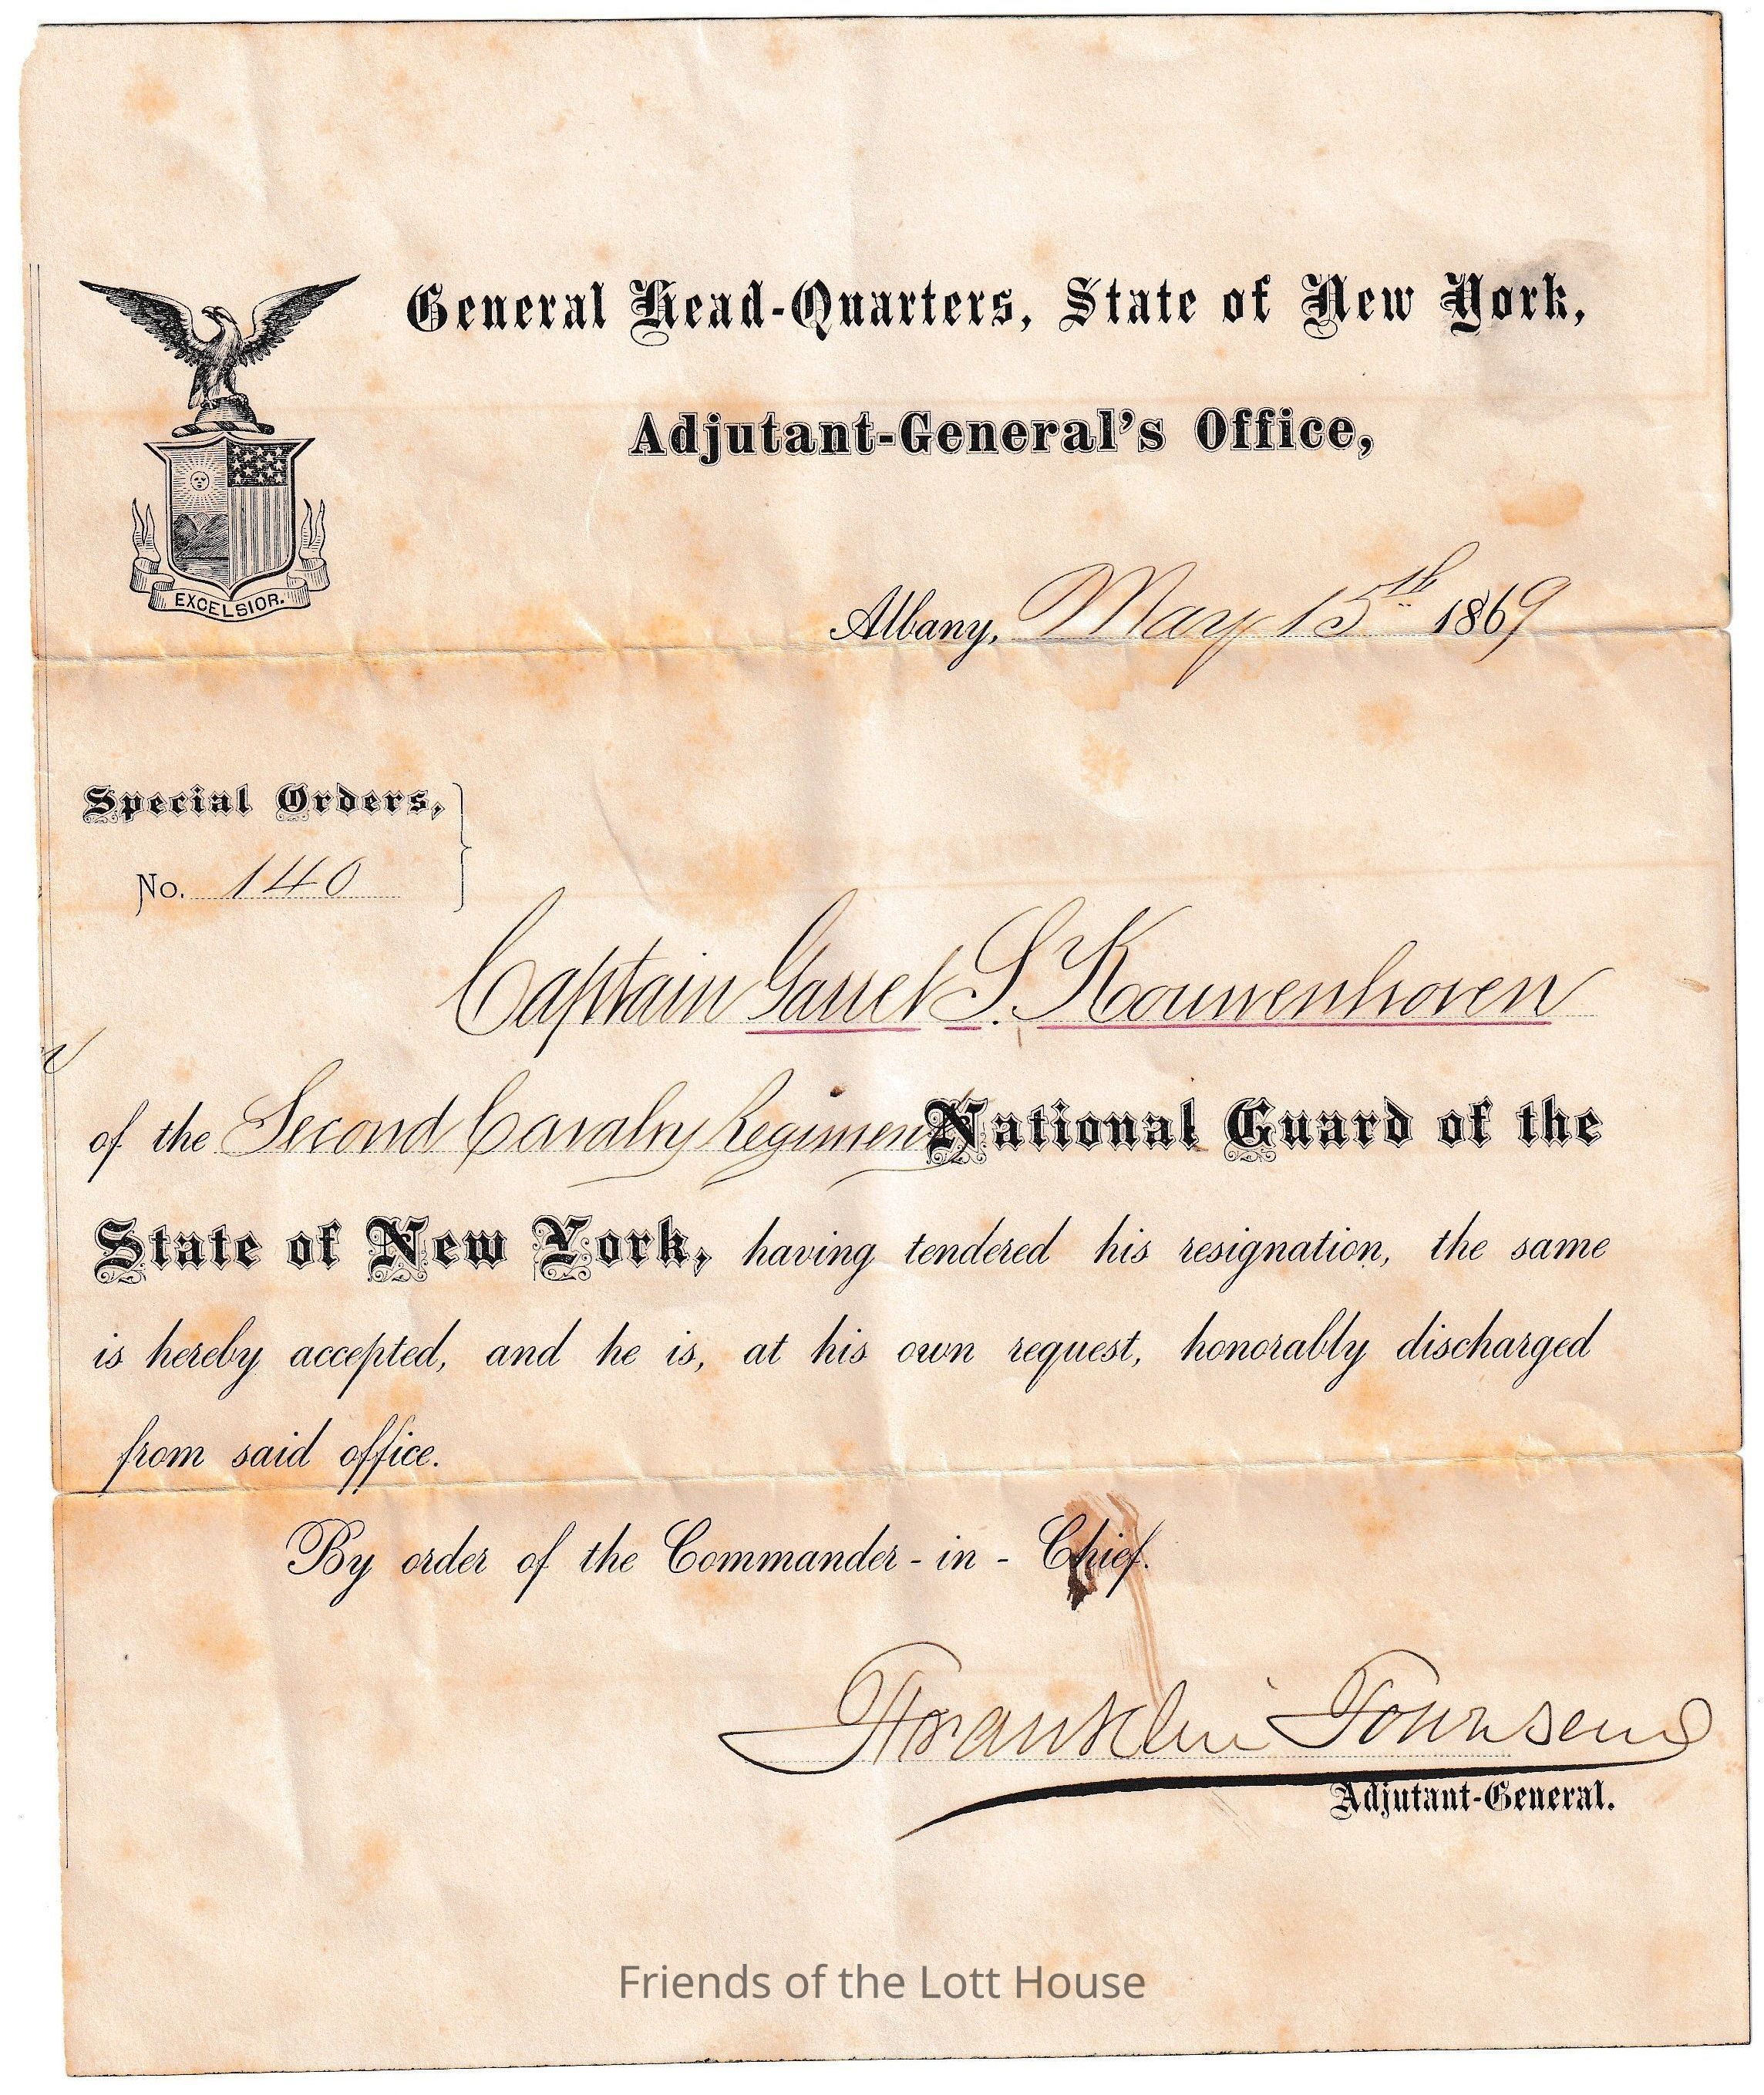 General Head-Quarters, State of New York,
Adjutant-General's Office,
EXCELSIOR.
Albany, May 15th 1869
Special Orders,
No. 140
Captain Garret S. Kouwenhoven
of the Second Cavalry Regiment National Guard of the
State of New York, having tendered his resignation, the same
is hereby accepted, and he is, at his own request, honorably discharged
from said office.
By order of the Commander-in-Chief.
Franklin Townsend
Adjutant-General.
Friends of the Lott House